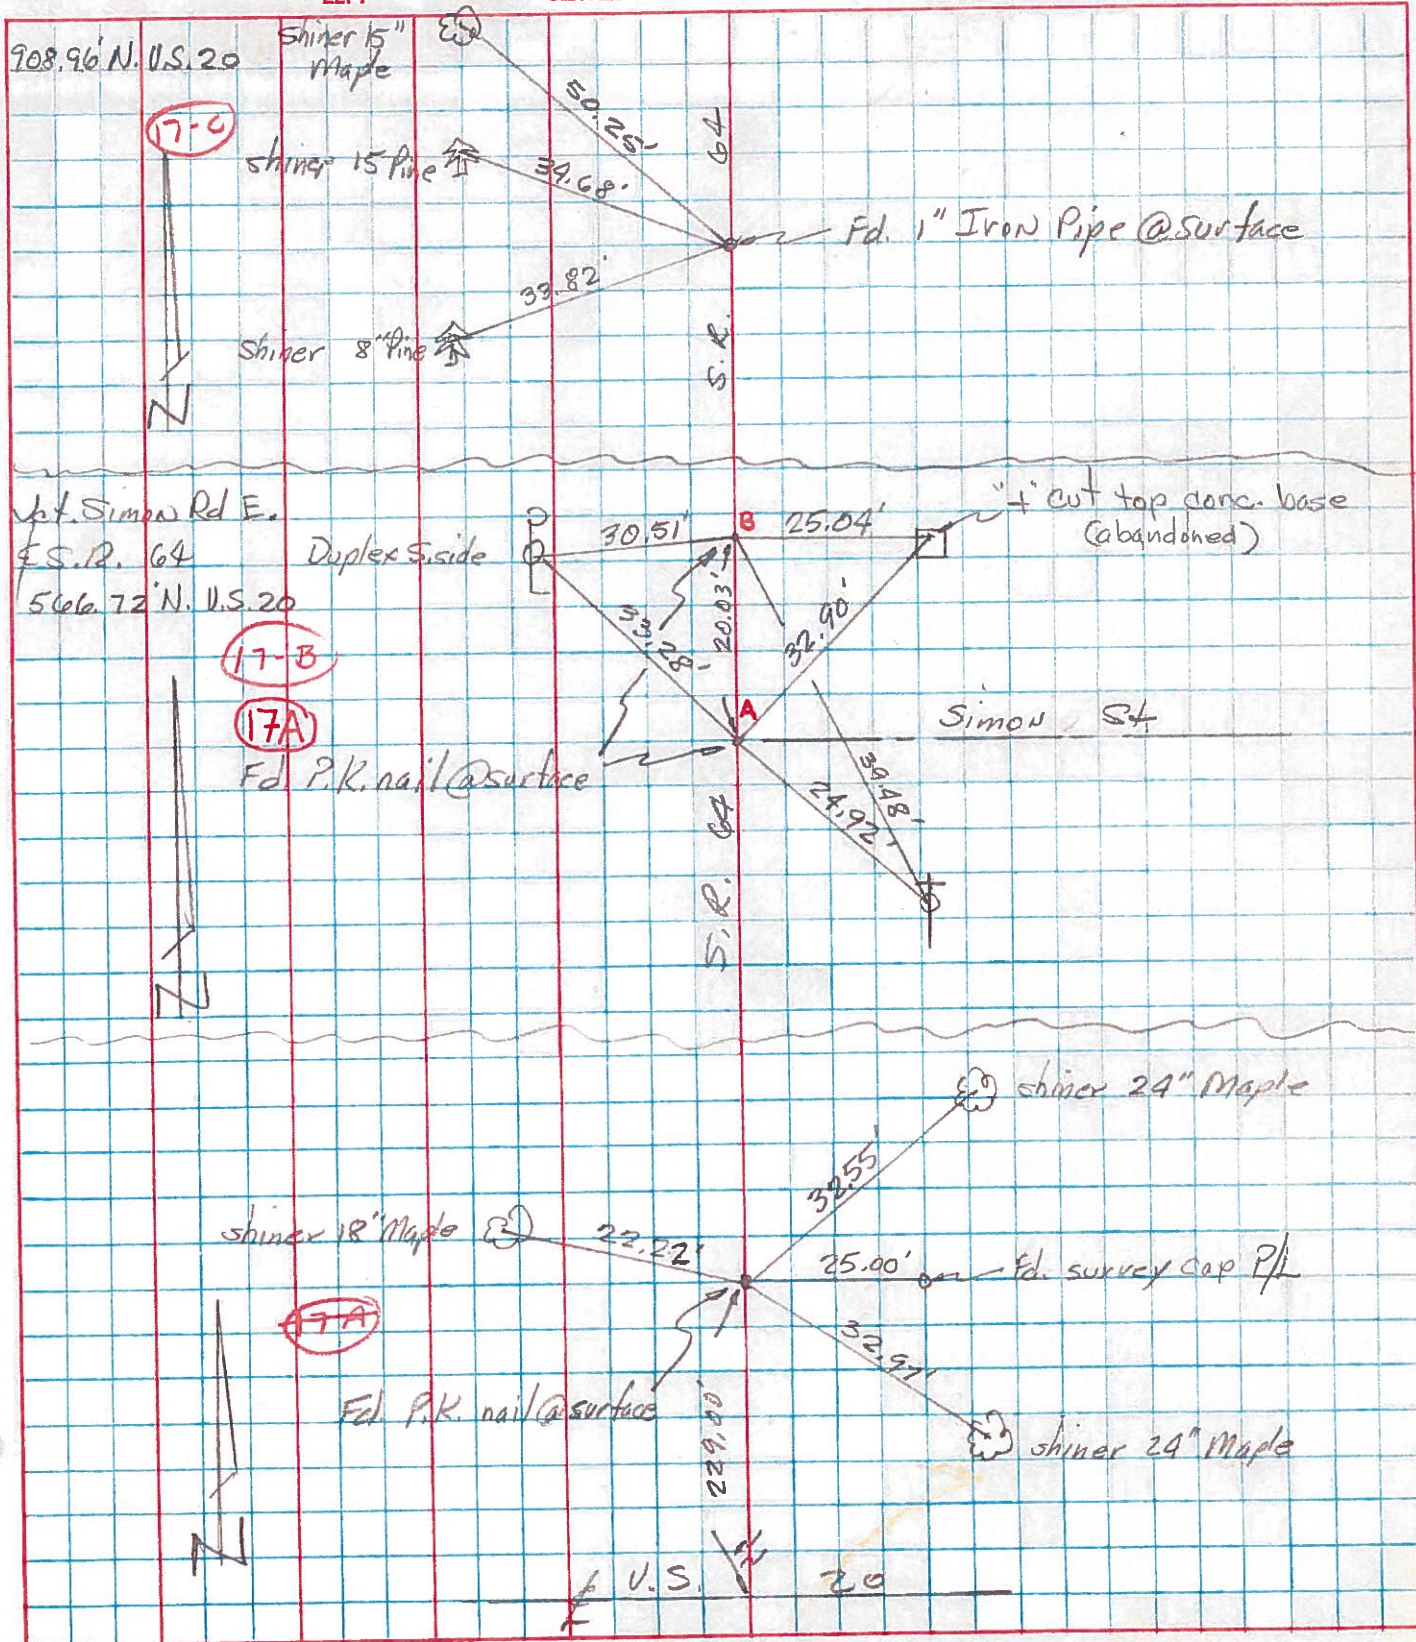 908.96' N. U.S. 20
shiner 15"
Maple
50.25'
17-C
shiner 15 Pine
34.68'
S.R. 64
Fd. 1" Iron Pipe @ surface
33.82'
shiner 8" Pine
N
Jct. Simon Rd E.
& S.R. 64
566.72' N. U.S. 20
Duplex S. side
30.51'
B
25.04'
"+" cut top conc. base
(abandoned)
33.28'
20.03'
32.90'
17-B
17A
A
Simon St
Fd. P.K. nail @ surface
39.48'
24.92'
S.R. 64
N
shiner 24" Maple
32.55'
shiner 18" Maple
22.22'
25.00'
Fd. survey cap P/L
17A
32.97'
Fd. P.K. nail @ surface
229.00'
shiner 24" Maple
N
℄ U.S. 20